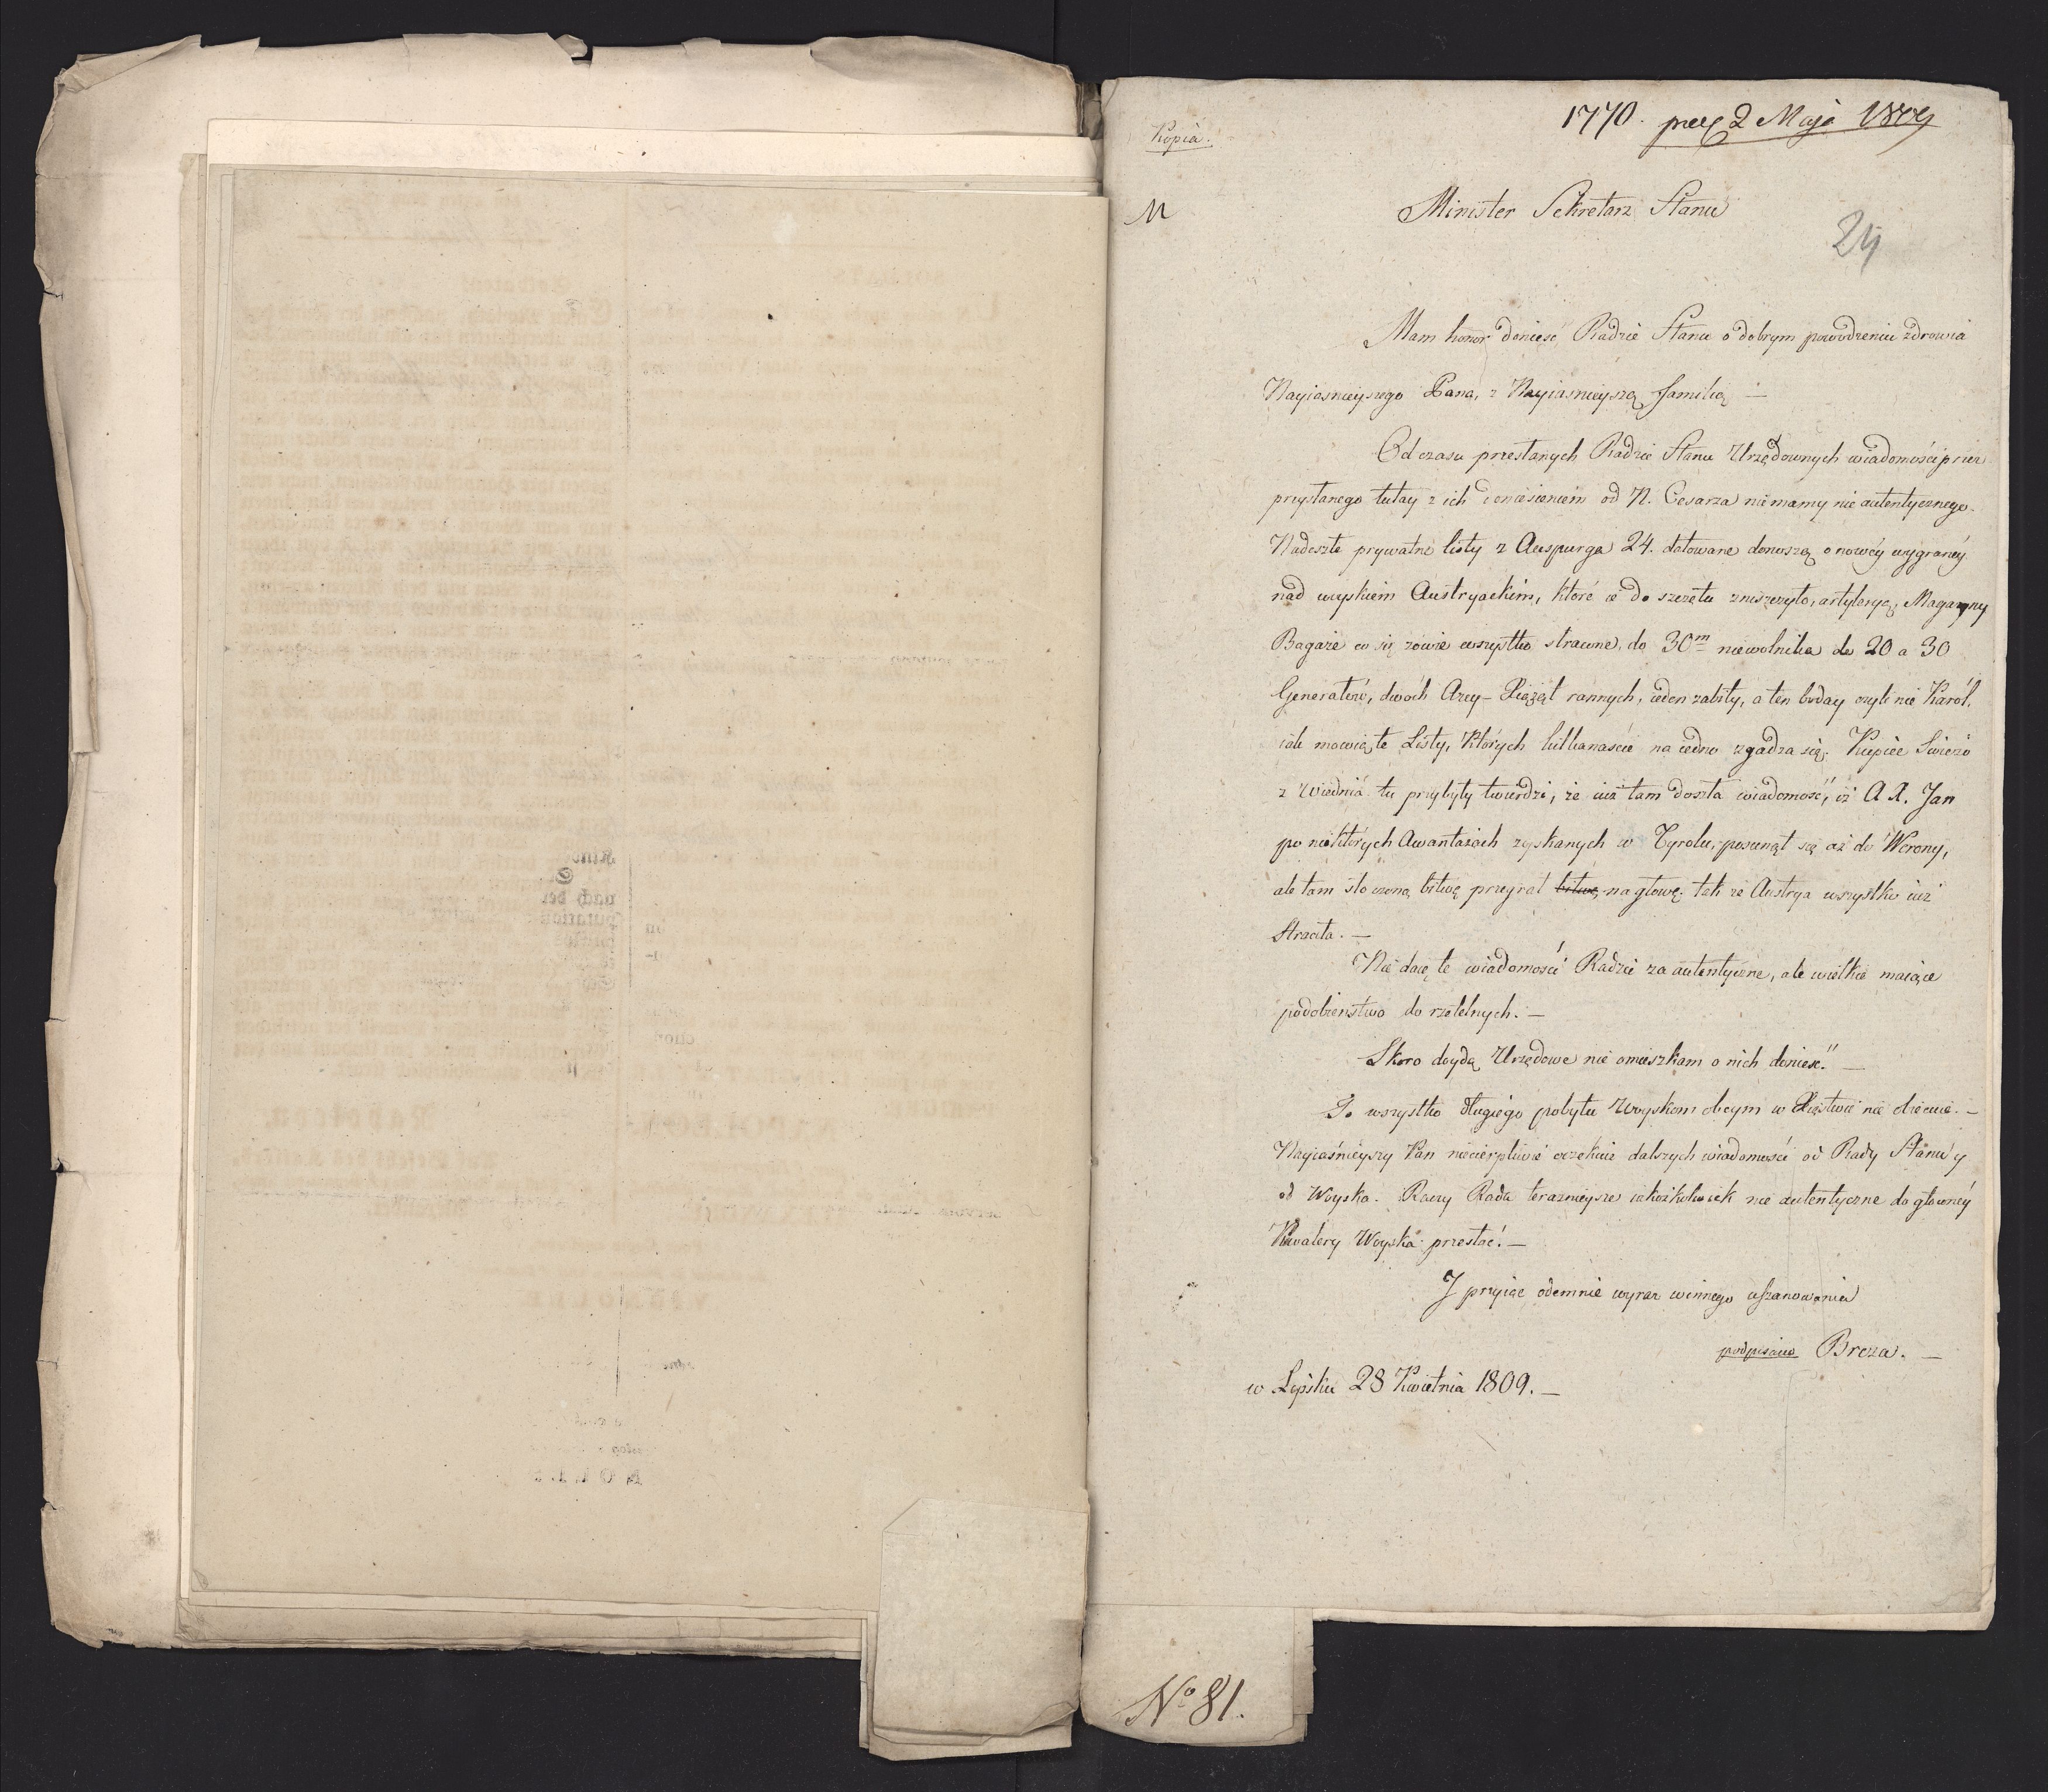 1770. 2 Maja 1809
Kopia.
M
Minister Sekretarz Stanu
24
Mam honor donieść Radzie Stanu o dobrym powodzeniu zdrowia
Nayiasnieyszego Pana, z Nayiasnieyszą familią —
Od czasu przesłanych Radzie Stanu Urzędownych wiadomości przez
przysłanego tutay z ich doniesieniem od N. Cesarza nie mamy nic autentycznego.
Nadeszłe prywatne listy z Auspurga 24. datowane donoszą o nowéy wygranéy
nad woyskiem Austryackim, które iż do szczętu zniszczyło, artyleryą, Magazyny
Bagaże co się zowie wszystko stracone, do 30m niewolnika do 20 a 30
Generałów, dwóch Arcy-Xiążąt rannych, ieden zabity, a ten boday czyli nie Karól.
iak mowią te Listy, których kilkanaście na iedno zgadza się. Kupiec świeżo
z Wiednia tu przybyły twierdzi, że iuż tam doszła wiadomość, iż A. X. Jan
po niektórych Awantażach zyskanych w Tyrolu, posunął się aż do Werony,
ale tam stoczoną bitwę przegrał bitwę na głowę. tak że Austrya wszystko iuż
straciła. —
Nie daię te wiadomości Radzie za autentyczne, ale wielkie maiące
podobienstwo do rzetelnych. —
Skoro doydą Urzędowe nie omieszkam o nich donieść. —
To wszystko długiégo pobytu Woyskom obcym w Xięstwie nie obiecuie. —
Nayiaśnieyszy Pan niecierpliwie oczekuie dalszych wiadomości od Rady Stanu y
od Woyska. Raczy Rada teraznieysze iakożkolwiek nie autentyczne do głownéy
Kwatery Woyska przesłać. —
J przyiąć odemnie wyraz winnego uszanowania
podpisano Breza. —
w Lipsku 28 Kwietnia 1809. —
No 81.